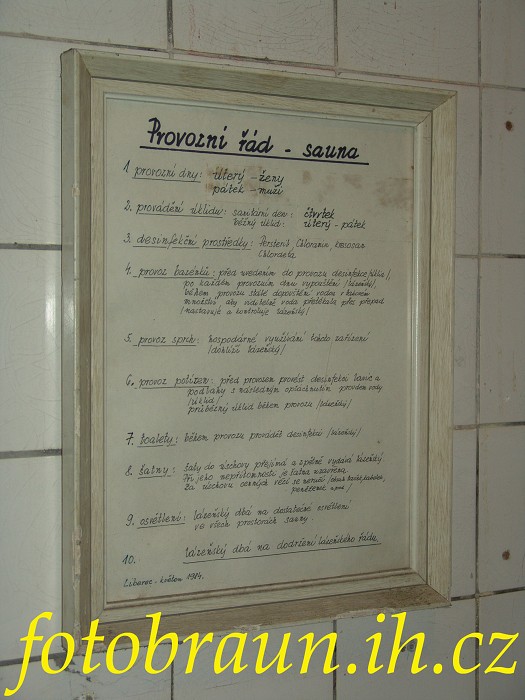 Provozní řád - sauna
1. provozní dny: úterý - ženy
pátek - muži
2. provádění úklidu: sanitární den: čtvrtek
běžný úklid: úterý - pátek
3. desinfekční prostředky: Persteril Chloramin, kresosan
Chloraeta
4. provoz bazénků: před uvedením do provozu desinfekce /úklid/,
po každém provozním dnu vypouštění /lázeňský/,
během provozu stálé dopouštění vodou v
množství aby viditelně voda přetékala přes přepad
/nastavuje a kontroluje lázeňský/
5. provoz sprch: hospodárné využívání tohoto zařízení
/dohlíží lázeňský/
6. provoz potíren: před provozem provést desinfekci lavic a
podlahy s následným opláchnutím proudem vody
/úklid/
průběžný úklid během provozu /lázeňský/
7. toalety: během provozu provádět desinfekci /lázeňský/
8. šatny: šaty do úschovy přejímá a zpětně vydává lázeňský.
Při jeho nepřítomnosti je šatna uzavřena.
Za úschovu cenných věcí se neručí
9. osvětlení: lázeňský dbá na dostatečné osvětlení
ve všech prostorách sauny.
10. lázeňský dbá na dodržení lázeňského řádu.
Liberec - květen 1984.
fotobraun.ih.cz